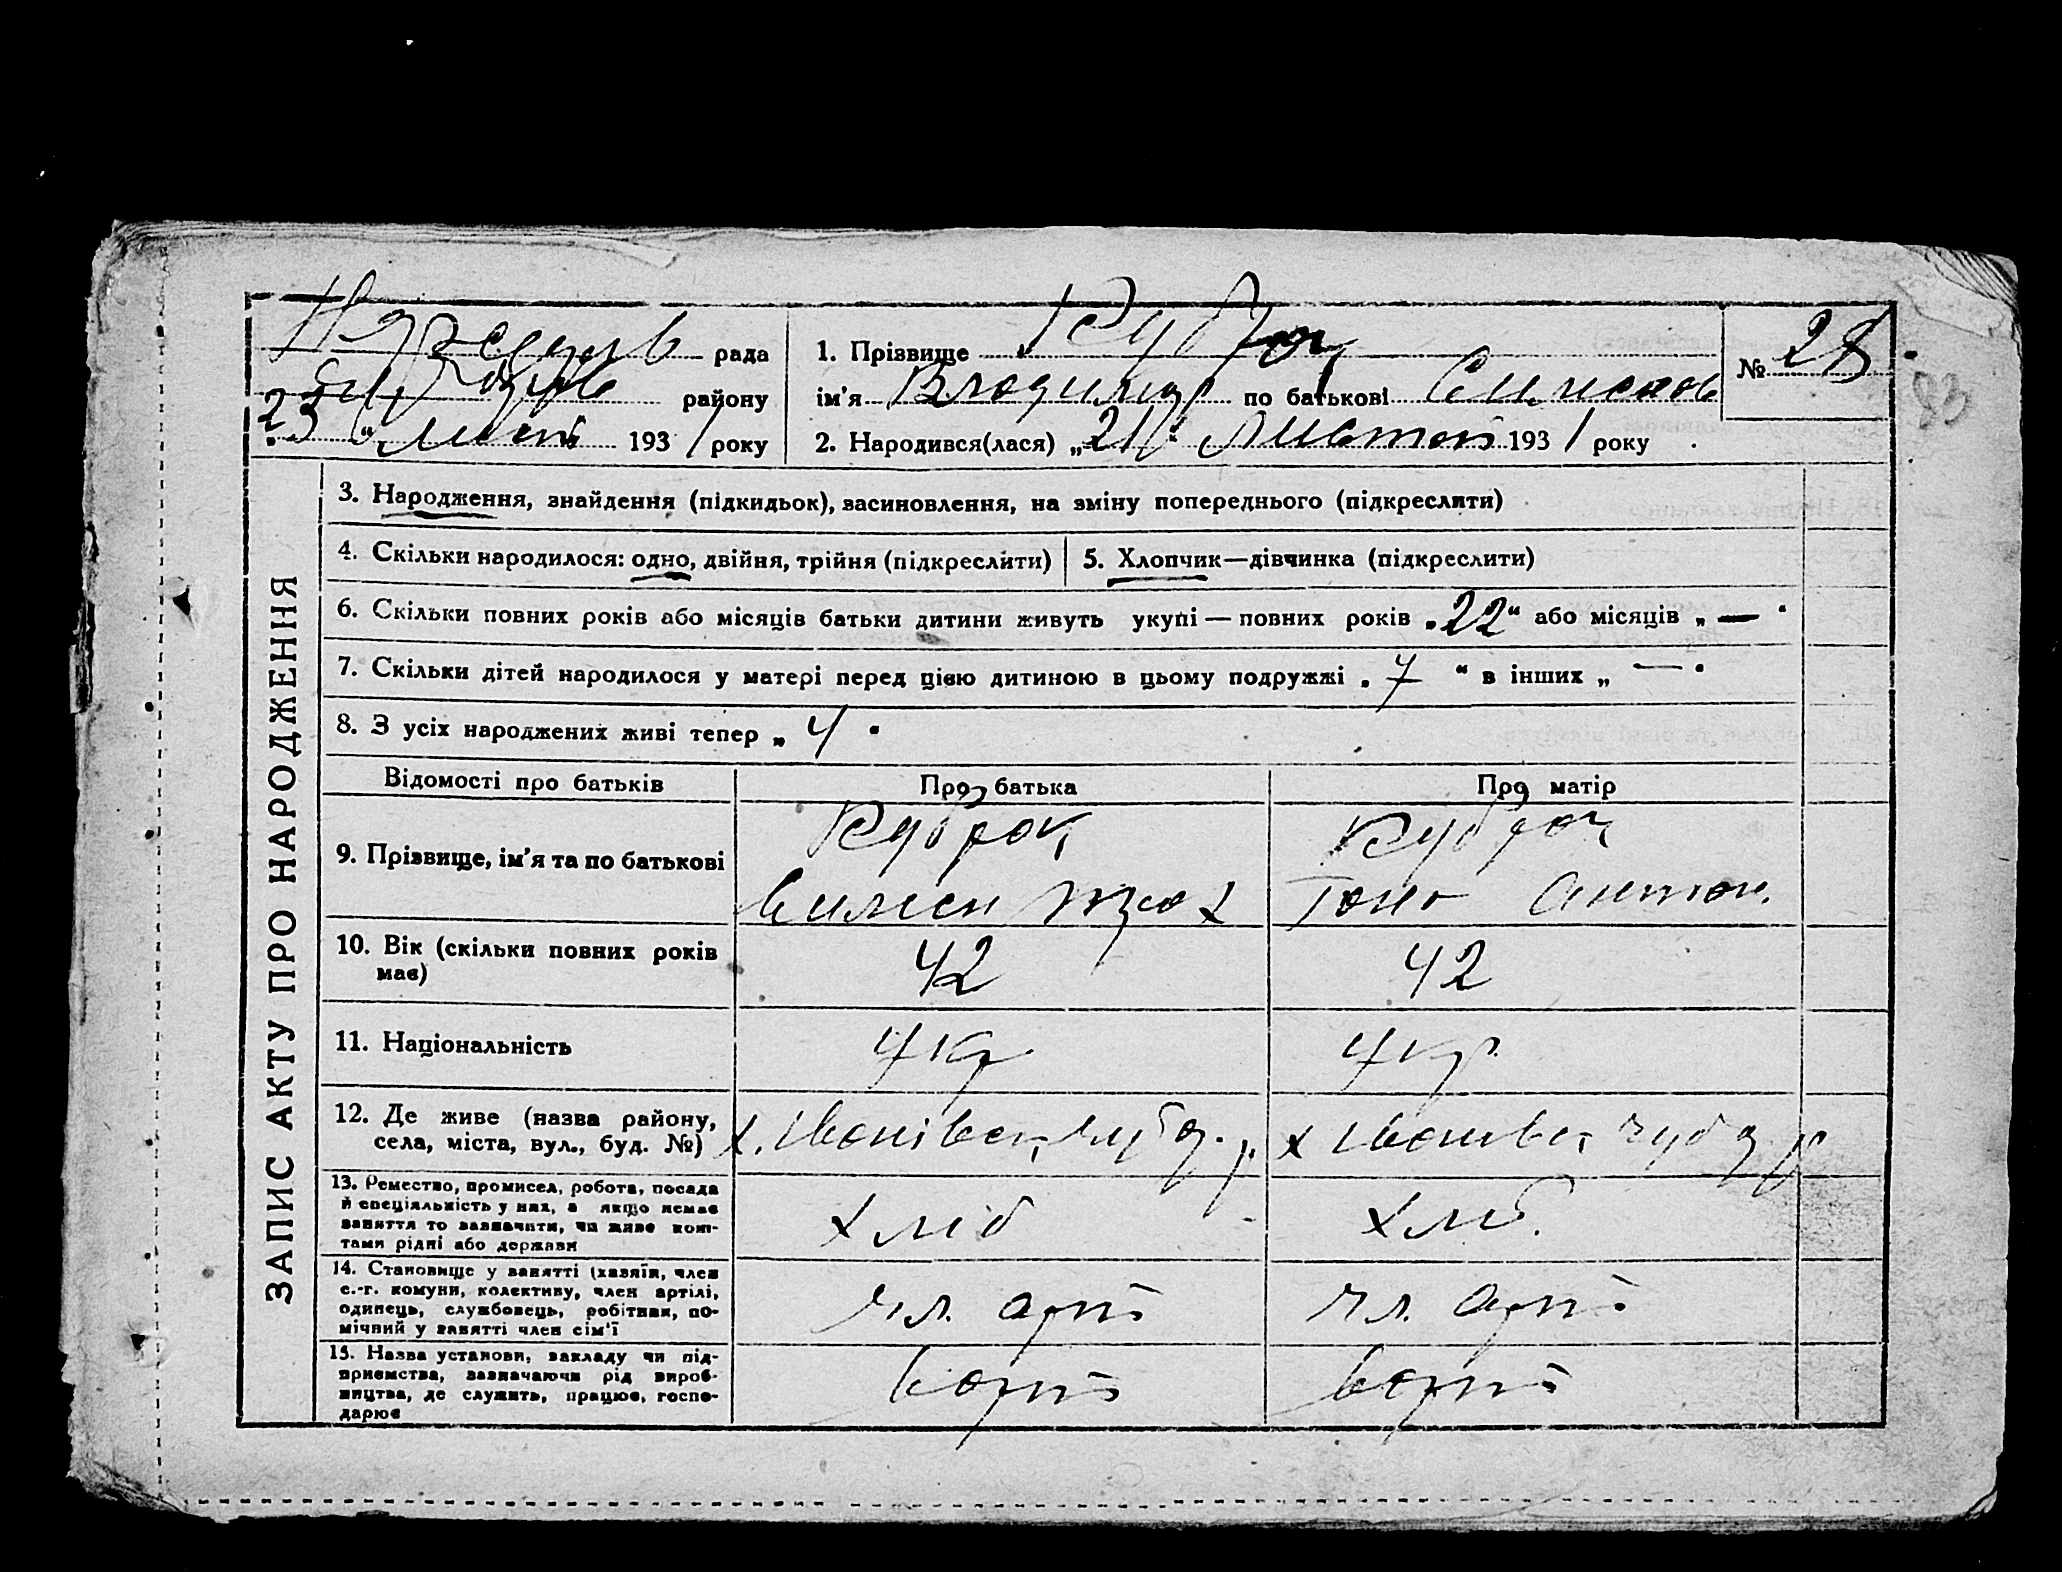 рада
1. Прізвище Кубрак
№ 28
району
ім'я Владимир по батькові
83
23 " 1931 року
2. Народився(лася) „21" Лютого 1931 року
ЗАПИС АКТУ ПРО НАРОДЖЕННЯ
3. Народження, знайдення (підкидьок), засиновлення, на зміну попереднього (підкреслити)
4. Скільки народилося: одно, двійня, трійня (підкреслити)
5. Хлопчик—дівчинка (підкреслити)
6. Скільки повних років або місяців батьки дитини живуть укупі — повних років „22" або місяців „—"
7. Скільки дітей народилося у матері перед цією дитиною в цьому подружжі „7" в інших „—"
8. З усіх народжених живі тепер „4"
Відомості про батьків
Про батька
Про матір
9. Прізвище, ім'я та по батькові
Кубрак
Кубрак
Антон.
10. Вік (скільки повних років
має)
42
42
11. Національність
Укр
Укр.
12. Де живе (назва району,
села, міста, вул., буд. №)
х. Іванівка, Чуб. р.
х Іванівка, Чуб р
13. Ремество, промисел, робота, посада
й спеціяльність у них, а якщо немає
заняття то зазначити, чи живе кош-
тами рідні або держави
хліб
хліб.
14. Становище у занятті (хазяїн, член
с.-г. комуни, колективу, член артілі,
одинець, службовець, робітник, по-
мічний у занятті член сім'ї
чл. арті
чл. арті
15. Назва установи, закладу чи під-
приємства, зазначаючи рід вироб-
ництва, де служить, працює, госпо-
дарює